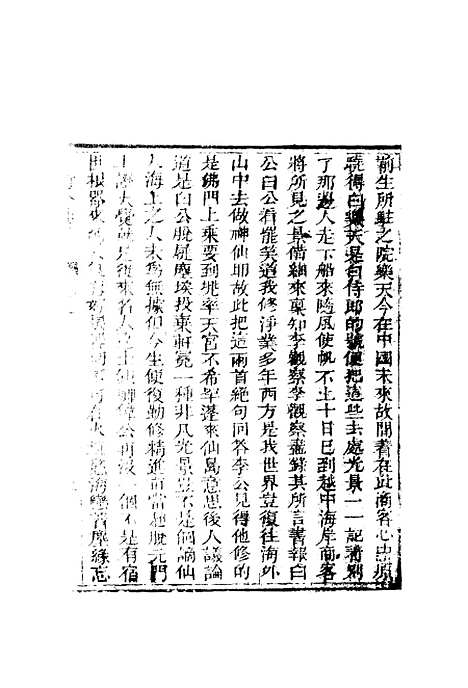 前生所駐之院樂天今在中國未來故閉着在此商客心中原
曉得白樂天是白侍郎的號便把這些去處光景一一記着別
了那邊人走下船來隨風使帆不上十日已到越中海岸商客
將所見之景備細來稟知李觀察李觀察盡錄其所言書報白
公白公看罷笑道我修淨業多年西方是我世界豈復往海外
山中去做神仙耶故此把這兩首絕句回答李公見得他修的
是佛門上乘要到兜率天宮不希罕蓬萊仙島意思後人議論
道是白公脫屣塵埃投棄軒冕一種非凡光景豈不是個謫仙
人海上之人未為無據但今生便復勤修精進直當超脫元門
上證大覺後來名人
世根